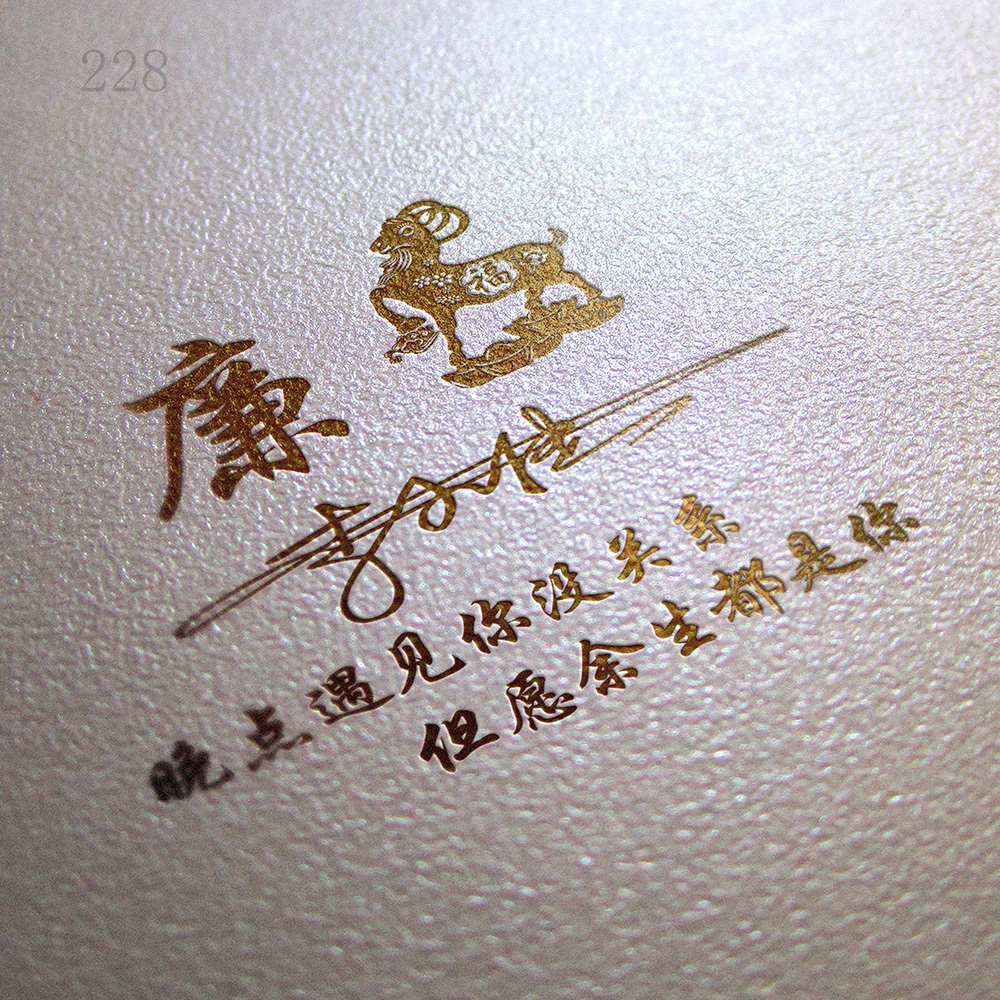 228
福
廉
晚点遇见你没关系
但愿余生都是你